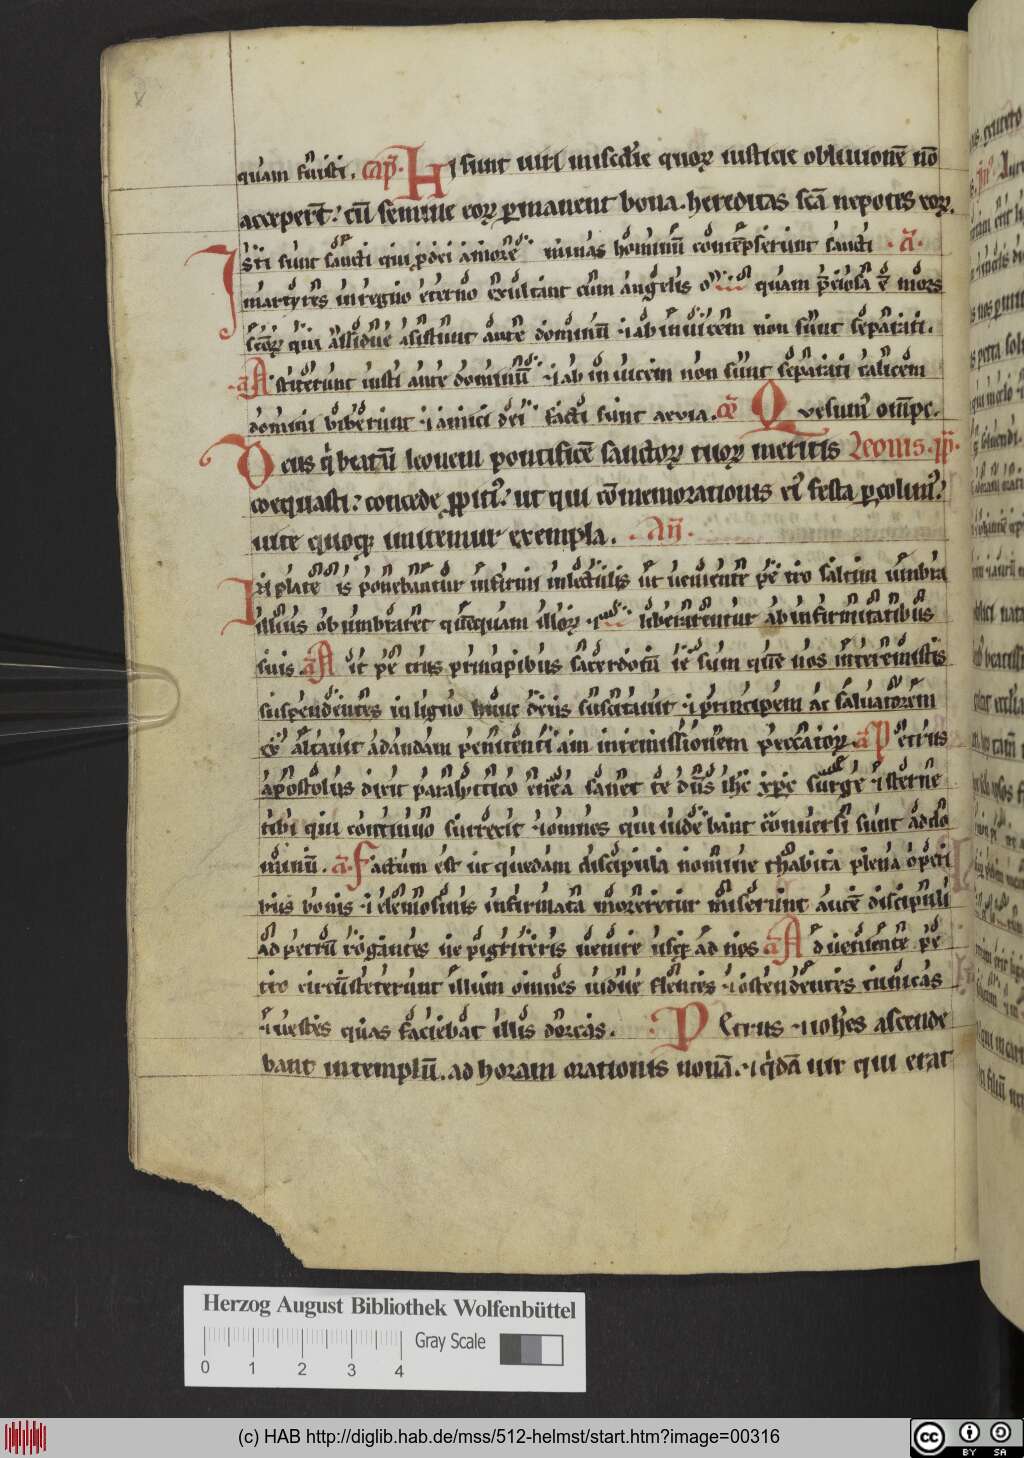 quam fuisti. cap̄. Hi sunt uiri mis̄cdīe quoꝝ iusticie obliuionē nō
accepert̄. cū semine eoꝝ ꝑmanent bona. hereditas sc̄a nepotes eoꝝ.
Isti sunt sancti qui ꝓ dei amore minas hominū contēpserunt sancti a͞.
martyres in regno eterno exultant cum angelis quam p̄ciosa ē mors
sc̄oꝝ qui assidue asistunt ante dominū ⁊ ab inuicem non sunt separati.
a͞ Astiterunt iusti ante dominū ⁊ ab inuicem non sunt separati calicem
domini biberunt ⁊ amici dei facti sunt aevia. Q ui sunt
Deus q̇ beatū leonem pontificē sanctoꝝ tuoꝝ meritis Leonis. pp̄.
coequasti. concede ꝓpiti᷒. ut qui cōmemorationis ei᷒ festa ꝑcolim᷒.
uite quoqꝫ imitemur exempla. An͞.
In plateis ponebantur infirmi in lectulis ut ueniente petro saltim umbra
illius obumbraret quemquam illoꝝ ⁊ liberarentur ab infirmitatibus
suis. a͞ Ait petrus principibus sacerdotū iesum quem uos interemistis
suspendentes in ligno hunc deus suscitauit ⁊ principem ac saluatorem
exaltauit ad dandam penitentiam in remissionem peccatoꝝ a͞ Petrus
apostolus dixit paralytico enea sanet te dn̄s ihc xpc surge ⁊ sterne
tibi qui continuo surrexit ⁊ omnes qui uidebant conuersi sunt ad do
minū. a͞. Factum est ut quedam discipula nomine thabita plena operi
bus bonis ⁊ elemosinis infirmata moreretur miserunt autē discipuli
ad petrū rogantes ne pigriteris uenire usqꝫ ad nos a͞ Aduenente pe
tro circūsteterunt illum omnes uidue flentes ⁊ ostendentes tunicas
⁊ uestes quas faciebat illis dorcas. Petrus ⁊ ioh̄es ascende
bant in templū. ad horam orationis nonā. ⁊ q̇dā uir qui erat
Herzog August Bibliothek Wolfenbüttel
Gray Scale
0 1 2 3 4
(c) HAB http://diglib.hab.de/mss/512-helmst/start.htm?image=00316
cc BY SA